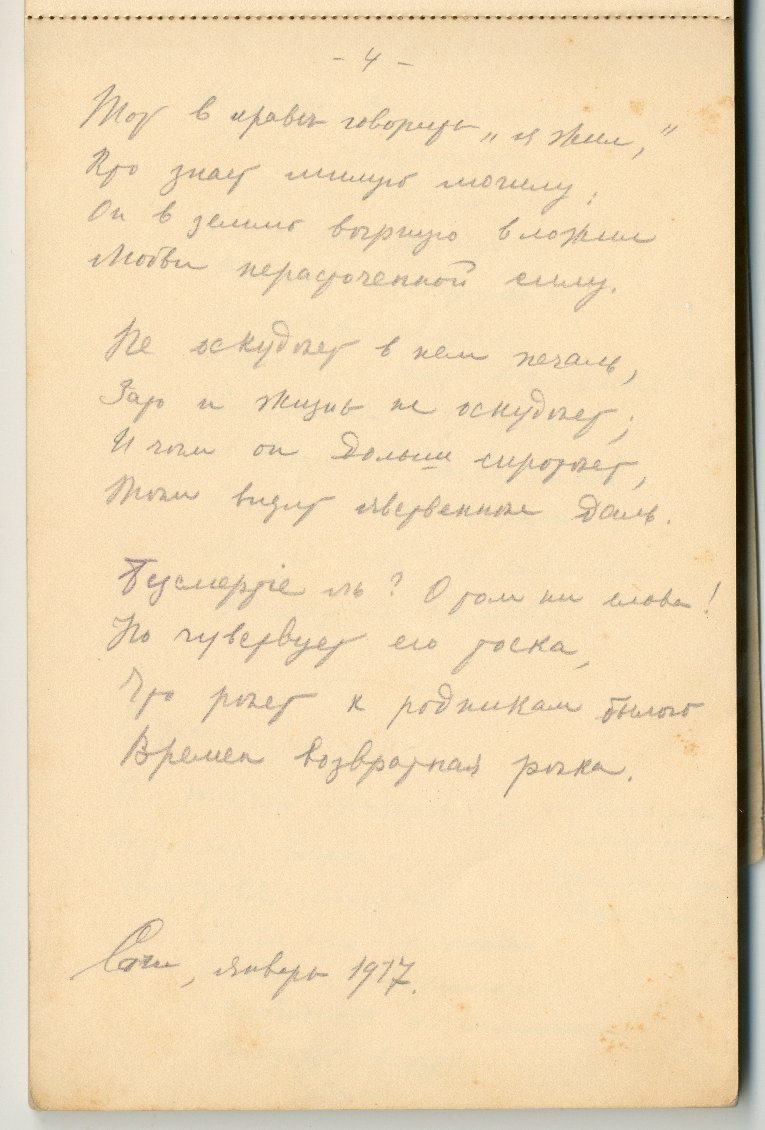 - 4 -
Тот в правѣ говорить „я жил,”
Кто знает милую могилу;
Он в землю вѣрную вложил
Любви нерасточенной силу.
Не оскудѣет в нем печаль,
Зато и жизнь не оскудѣет;
И чѣм он дольше сиротѣет,
Тѣм видит явственнѣе даль.
Безсмертіе ль? О том ни слова!
Но чувствует его тоска,
Что рѣет к родникам былого
Времен возвратная рѣка.
Сочи, январь 1917.